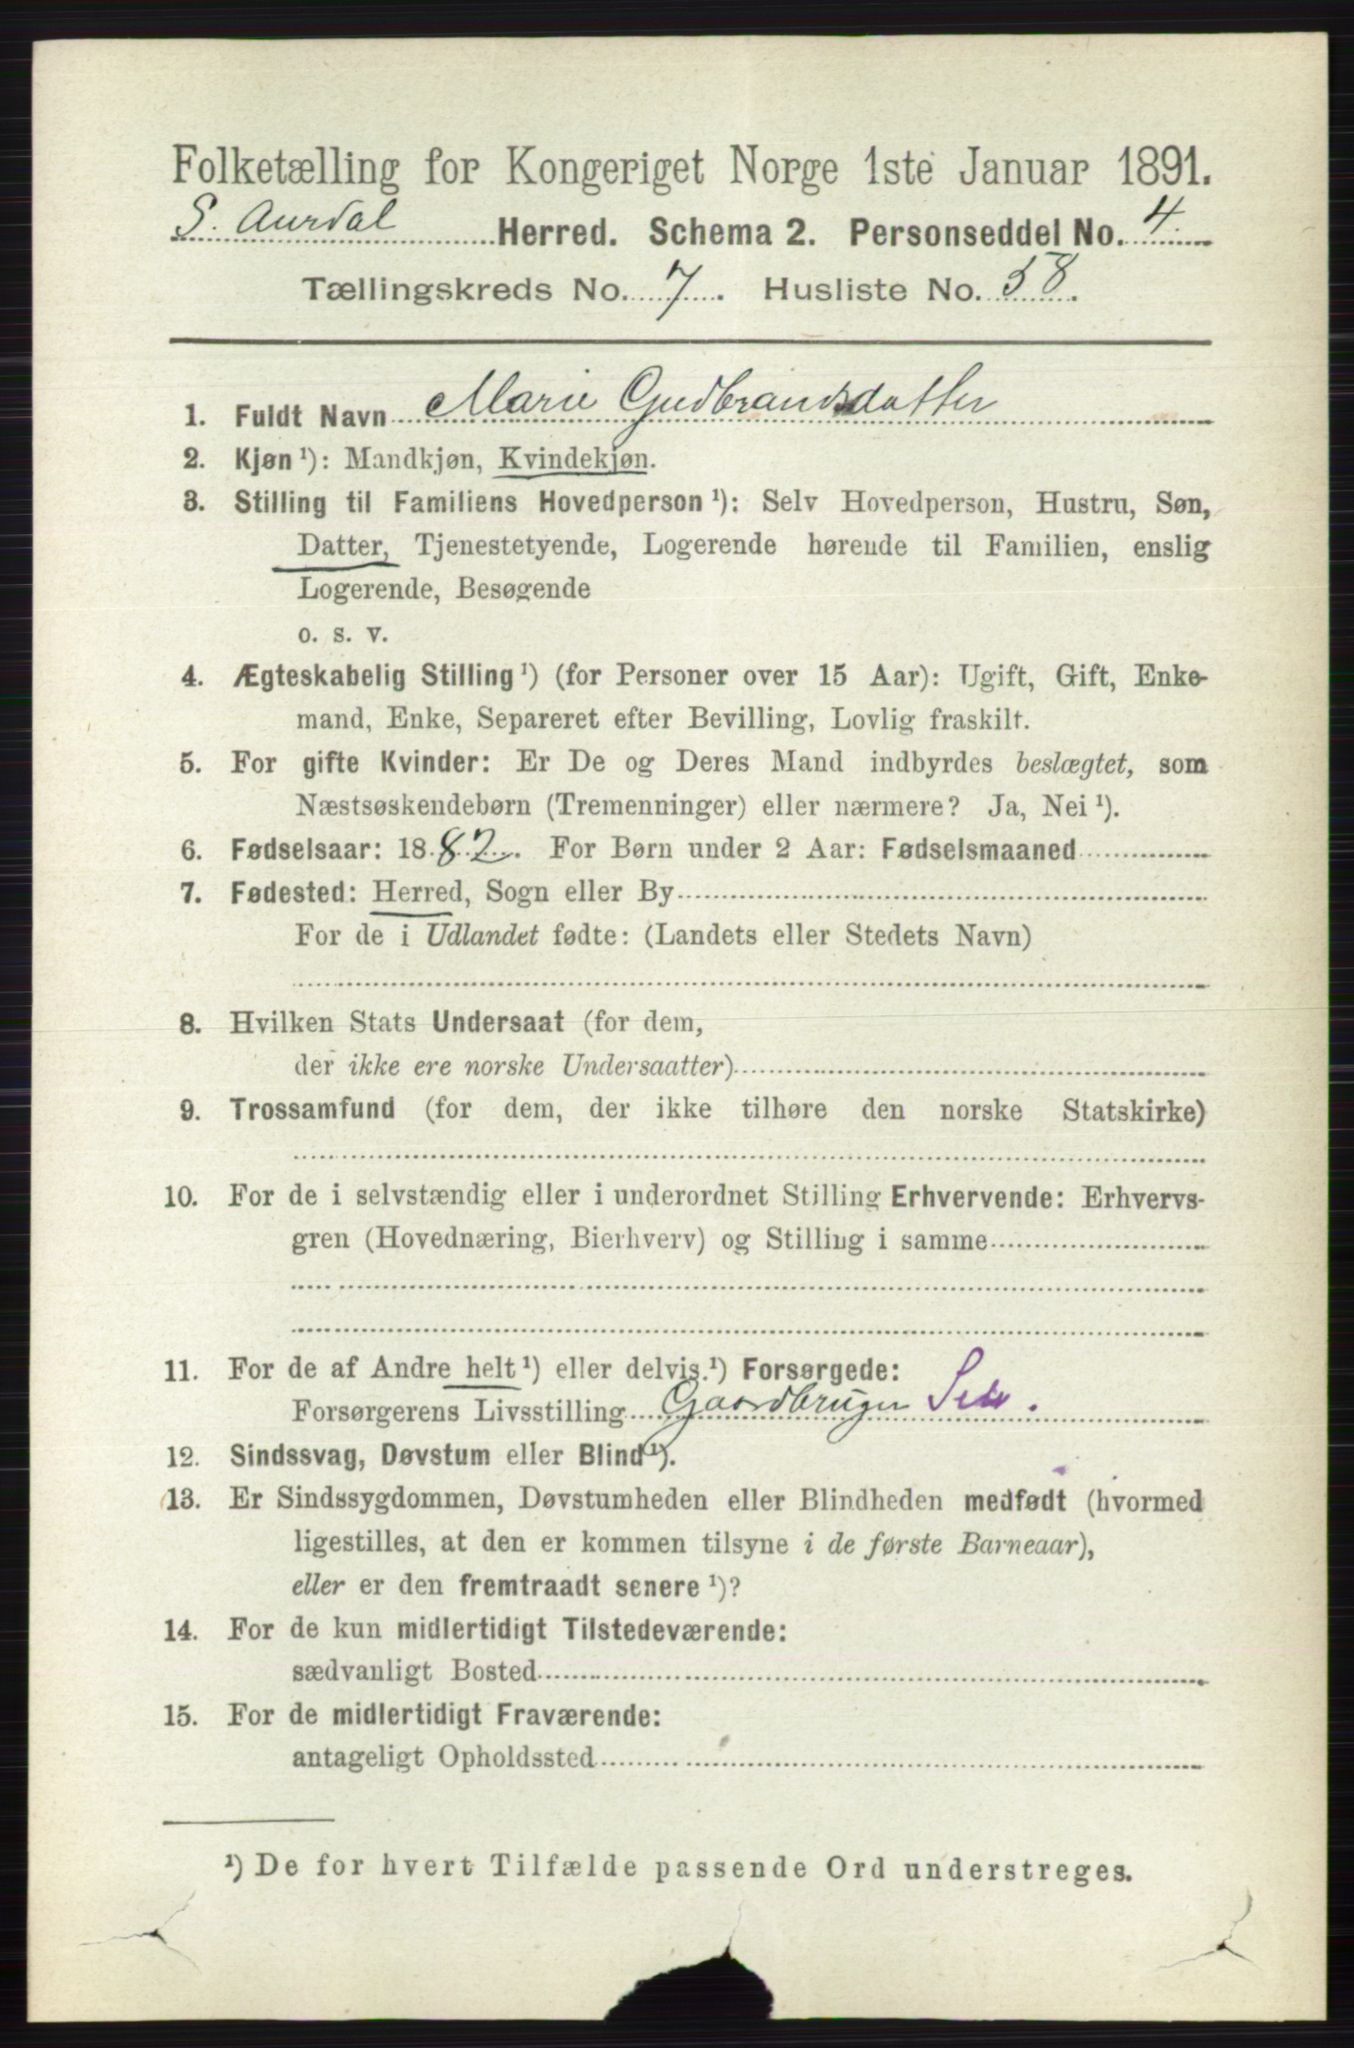 Folketælling for Kongeriget Norge 1ste Januar 1891.
S. Aurdal Herred. Schema 2. Personseddel No. 4.
Tællingskreds No. 7. Husliste No. 58.
1. Fuldt Navn Marie Gudbrandsdatter
2. Kjøn ¹): Mandkjøn, Kvindekjøn.
3. Stilling til Familiens Hovedperson ¹): Selv Hovedperson, Hustru, Søn,
Datter, Tjenestetyende, Logerende hørende til Familien, enslig
Logerende, Besøgende
o. s. v.
4. Ægteskabelig Stilling ¹) (for Personer over 15 Aar): Ugift, Gift, Enke-
mand, Enke, Separeret efter Bevilling, Lovlig fraskilt.
5. For gifte Kvinder: Er De og Deres Mand indbyrdes beslægtet, som
Næstsøskendebørn (Tremenninger) eller nærmere? Ja, Nei ¹).
6. Fødselsaar: 1882. For Børn under 2 Aar: Fødselsmaaned
7. Fødested: Herred, Sogn eller By
For de i Udlandet fødte: (Landets eller Stedets Navn)
8. Hvilken Stats Undersaat (for dem,
der ikke ere norske Undersaatter)
9. Trossamfund (for dem, der ikke tilhøre den norske Statskirke)
10. For de i selvstændig eller i underordnet Stilling Erhvervende: Erhvervs-
gren (Hovednæring, Bierhverv) og Stilling i samme
11. For de af Andre helt ¹) eller delvis. ¹) Forsørgede:
Forsørgerens Livsstilling Gaardbruger Sel.
12. Sindssvag, Døvstum eller Blind ¹).
13. Er Sindssygdommen, Døvstumheden eller Blindheden medfødt (hvormed
ligestilles, at den er kommen tilsyne i de første Barneaar),
eller er den fremtraadt senere ¹)?
14. For de kun midlertidigt Tilstedeværende:
sædvanligt Bosted
15. For de midlertidigt Fraværende:
antageligt Opholdssted
¹) De for hvert Tilfælde passende Ord understreges.